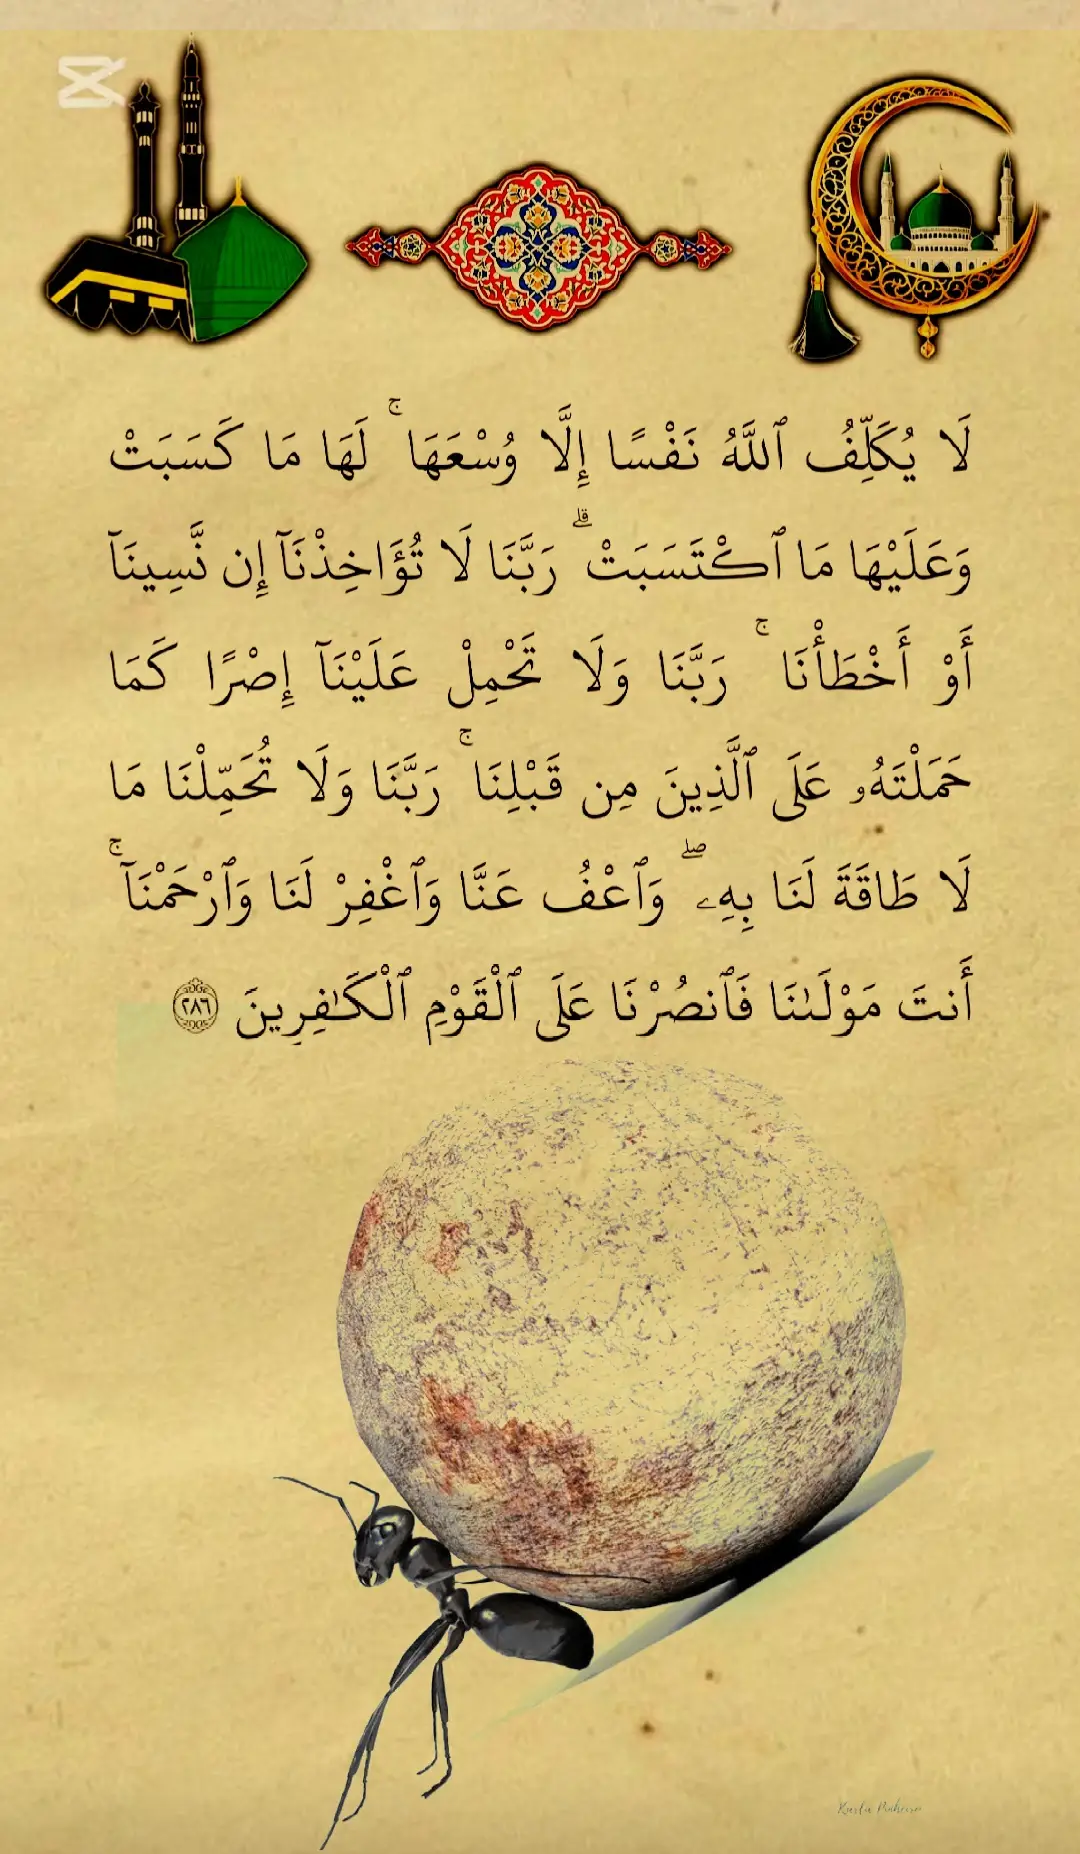 لَا يُكَلِّفُ ٱللَّهُ نَفْسًا إِلَّا وُسْعَهَا ۚ لَهَا مَا كَسَبَتْ
وَعَلَيْهَا مَا ٱكْتَسَبَتْ ۗ رَبَّنَا لَا تُؤَاخِذْنَآ إِن نَّسِينَآ
أَوْ أَخْطَأْنَا ۚ رَبَّنَا وَلَا تَحْمِلْ عَلَيْنَآ إِصْرًا كَمَا
حَمَلْتَهُۥ عَلَى ٱلَّذِينَ مِن قَبْلِنَا ۚ رَبَّنَا وَلَا تُحَمِّلْنَا مَا
لَا طَاقَةَ لَنَا بِهِۦ ۖ وَٱعْفُ عَنَّا وَٱغْفِرْ لَنَا وَٱرْحَمْنَآ ۚ
أَنتَ مَوْلَىٰنَا فَٱنصُرْنَا عَلَى ٱلْقَوْمِ ٱلْكَـٰفِرِينَ ٢٨٦